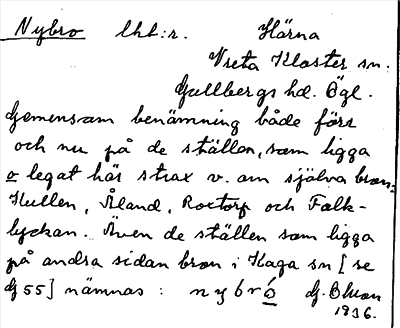 Nybro lht:r. Härna
Vreta Kloster sn.
Gullbergs hd. Ögl.
Gemensam benämning både förr
och nu på de ställen, som ligga
o legat här strax v. om själva bron:
Kullen, Åland, Roxtorp och Falk-
lyckan. Även de ställen som ligga
på andra sidan bron i Kaga sn [se
G 55] nämnas: nybró G. Bhson
1936.